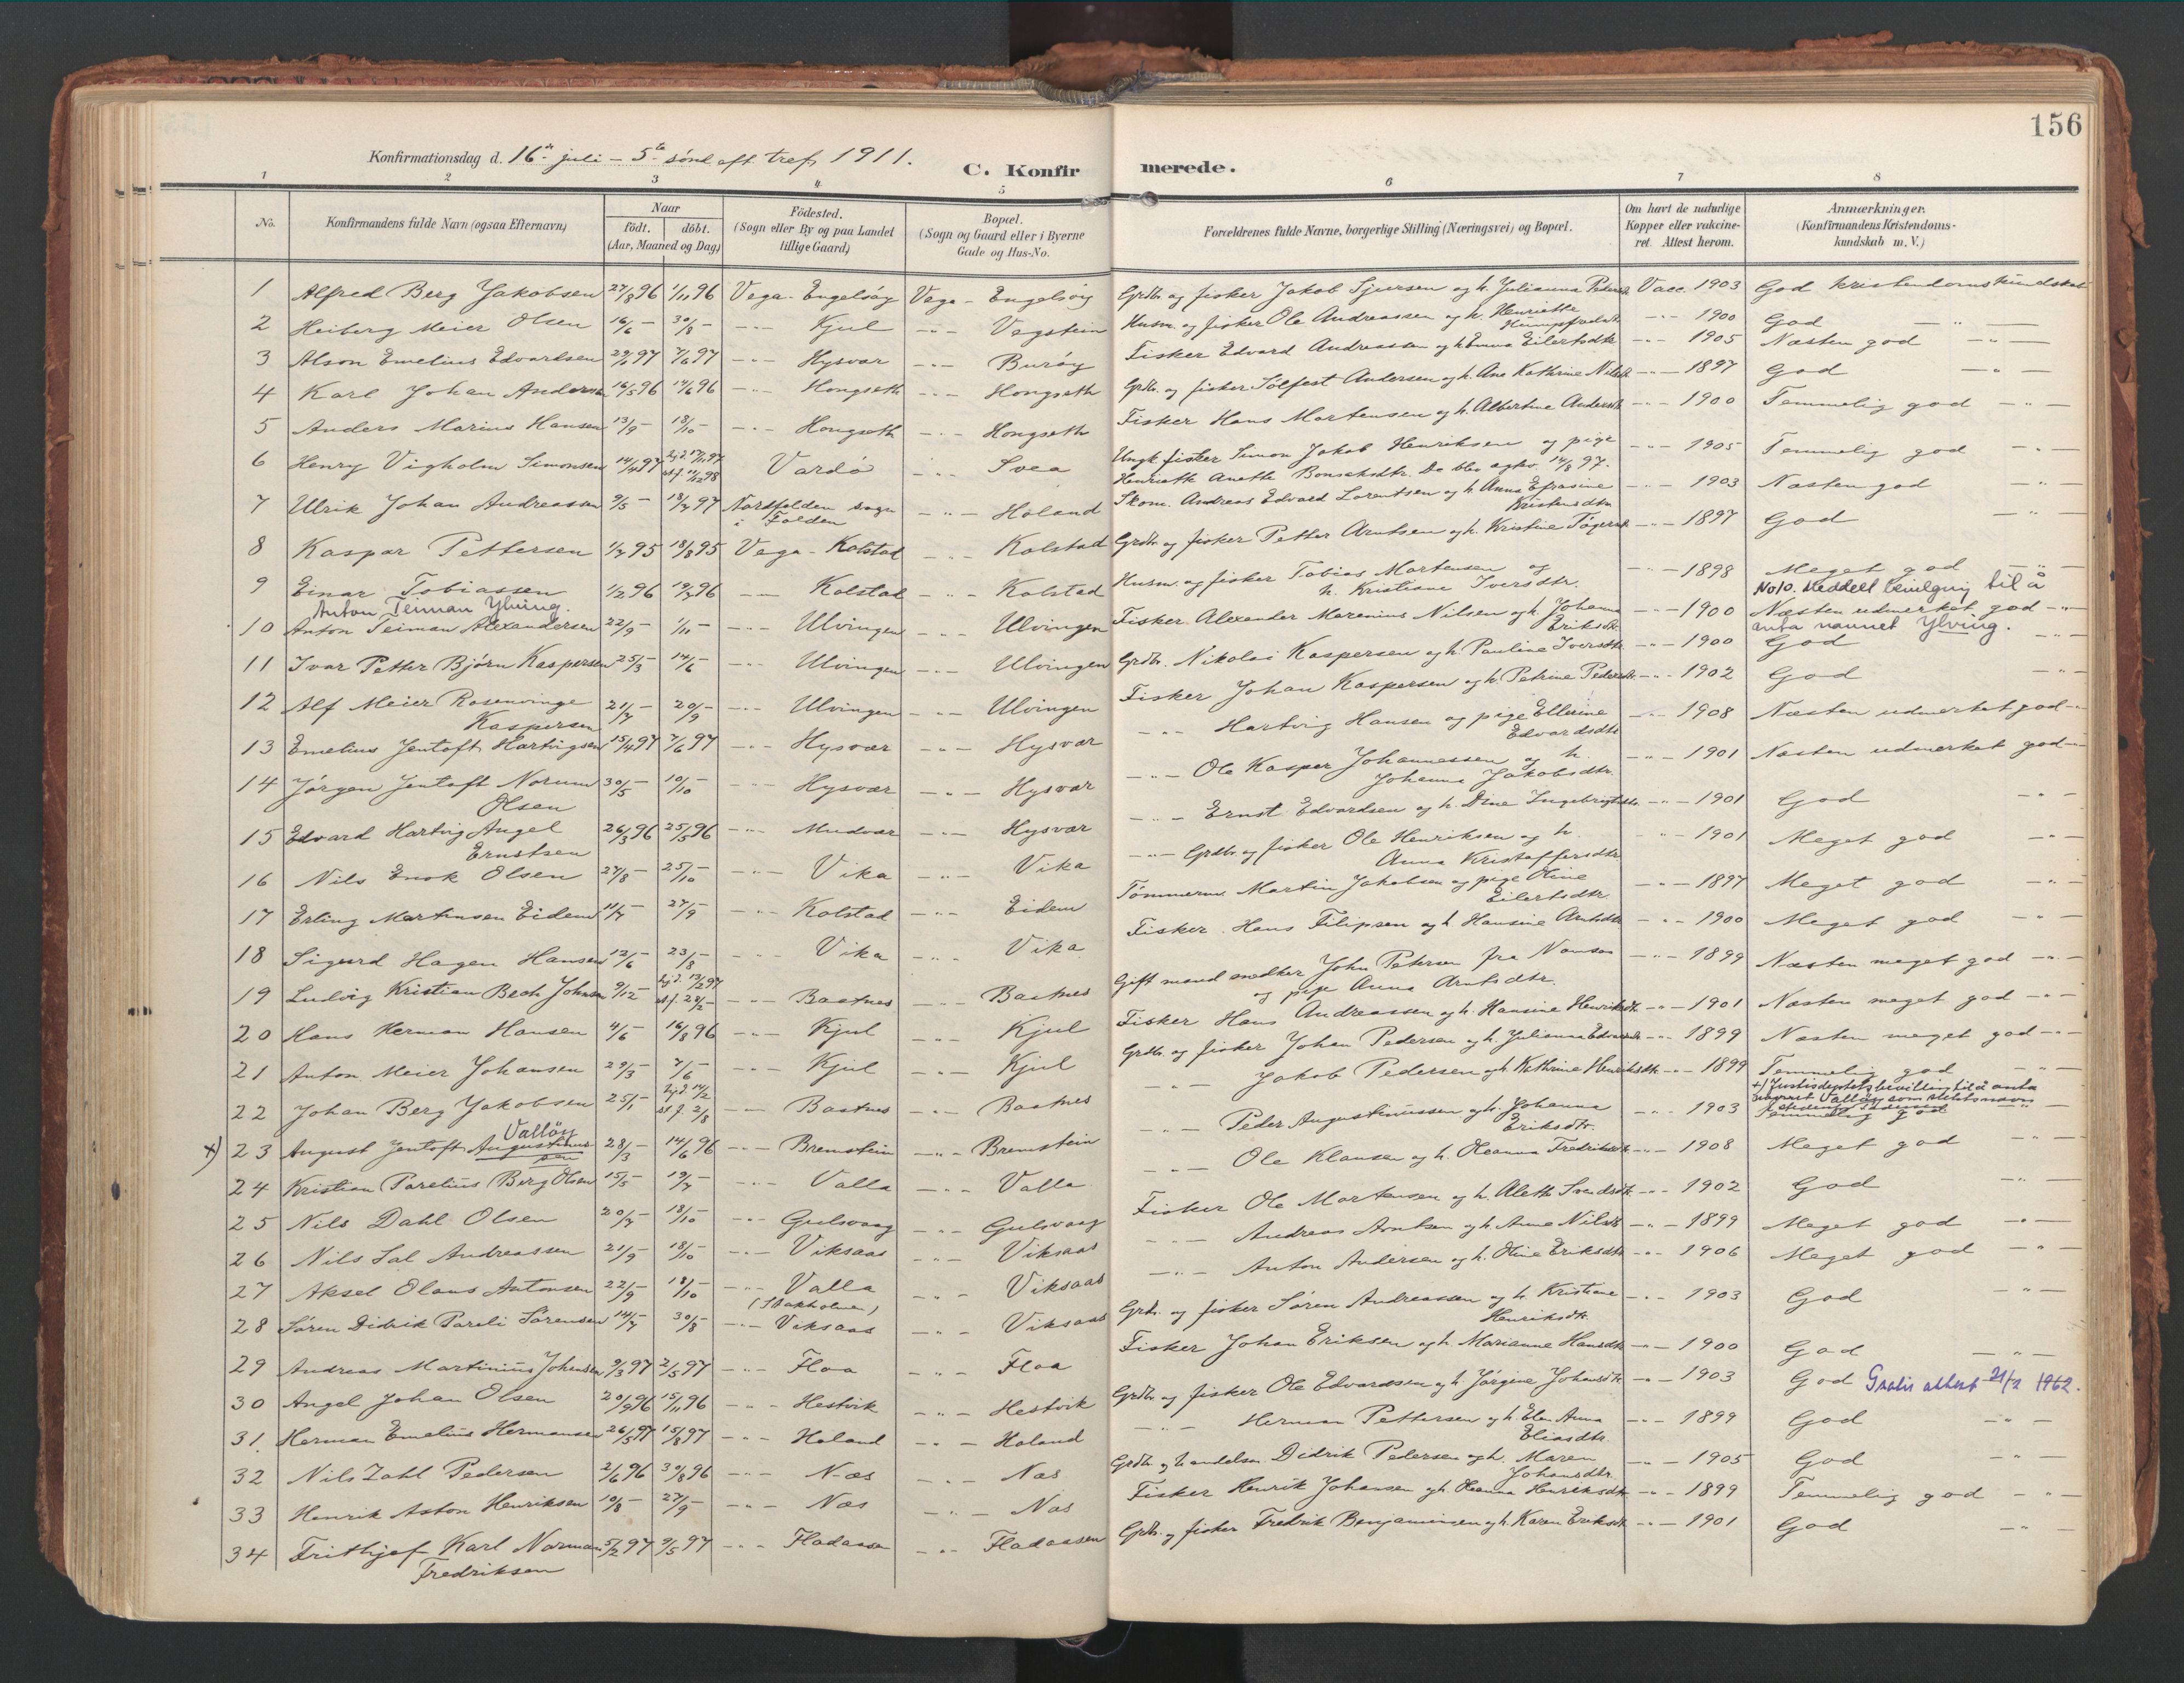 156
Konfirmationsdag d. 16de juli – 5te sönd. eft. tref. 1911.
C. Konfir merede.
1 2 3 4 5 6 7 8
No. Konfirmandens fulde Navn (ogsaa Efternavn) Naar födt. döbt. (Aar, Maaned og Dag) Födested. (Sogn eller By og paa Landet tillige Gaard) Bopæl. (Sogn og Gaard eller i Byerne Gade og Hus-No. Forældrenes fulde Navne, borgerlige Stilling (Næringsvei) og Bopæl. Om havt de naturlige Kopper eller vakcineret. Attest herom. Anmærkninger. (Konfirmandens Kristendomskundskab m. V.)
1 Alfred Berg Jakobsen 27/8 96 1/11 96 Vega - Engelsöy Vega - Engelsöy Grdbr. og fisker Jakob Sjursen og h. Julianna Pedersdtr. Vacc. 1903 God kristendomskundskab
2 Heiberg Meier Olsen 16/6 – 30/8 – -"- Kjul -"- Vegstein Husm. og fisker Ole Andreassen og h. Henriette -"- 1900 God -"-
3 Alson Emelius Edvardsen 29/1 97 7/6 97 -"- Hysvær -"- Buröy Fisker Edvard Andreassen og h. Emma Eilertsdtr. -"- 1905 Næsten god -"-
4 Karl Johan Andersen 16/5 96 14/6 96 -"- Hongseth -"- Hongseth Grdbr. og fisker Sölfest Andersen og h. Ane Kathrine Nilsdtr. -"- 1897 God -"-
5 Anders Marius Hansen 13/9 – 18/10 – -"- Hongseth -"- Hongseth Fisker Hans Martensen og h. Albertine Andersdtr. -"- 1900 Temmelig god -"-
6 Henry Vigholm Simonsen 14/4 97 Hj.d. 17/11 97 st.f. 11/12 98 Vardö -"- Svea Ungk. fisker Simon Jakob Henriksen og pige Henriette Anette Bonsaksdtr. De blev agtev. 14/8 97. -"- 1905 Temmelig god -"-
7 Ulrik Johan Andreassen 9/5 – 18/7 97 Nordfolden sogn i Folden -"- Holand Skom. Andreas Edvard Lorentsen og h. Anna Efrasine Kristensdtr. -"- 1903 Næsten god -"-
8 Kaspar Pettersen 1/7 95 18/8 95 Vega - Kolstad -"- Kolstad Grdbr. og fisker Petter Arntsen og h. Kristine -"- 1897 God -"-
9 Einar Tobiassen 1/2 96 19/7 96 -"- Kolstad -"- Kolstad Husm. og fisker Tobias Mortensen og h. Kristiane Iversdtr. -"- 1898 Meget god -"-
Anton Teiman Ylving. No 10. Meddelt bevilgning til å anta navnet Ylving.
10 Anton Teiman Alexandersen 22/9 – 1/11 – -"- Ulvingen -"- Ulvingen Fisker Alexander Marenius Nilsen og h. Johanna Eriksdtr. -"- 1900 Næsten udmerket god -"-
11 Ivar Petter Björn Kaspersen 25/3 – 14/6 – -"- Ulvingen -"- Ulvingen Grdbr. Nikolai Kaspersen og h. Pauline Iversdtr. -"- 1900 God -"-
12 Alf Meier Rosenvinge Kaspersen 21/7 – 20/9 – -"- Ulvingen -"- Ulvingen Fisker Johan Kaspersen og h. Petrine Pedersdtr. -"- 1902 God -"-
13 Emelius Jentoft Hartvigsen 15/4 97 7/6 97 -"- Hysvær -"- Hysvær -"- Hartvig Hansen og pige Ellerine Edvardsdtr. -"- 1908 Næsten udmerket god -"-
14 Jörgen Jentoft Norum Olsen 30/5 – 10/10 – -"- Hysvær -"- Hysvær -"- Ole Kasper Johannessen og h. Johanna Jakobsdtr. -"- 1901 Næsten udmerket god -"-
15 Edvard Hartvig Angel Ernstsen 26/3 96 25/5 96 -"- Mudvær -"- Hysvær -"- Ernst Edvardsen og h. Dine Ingebrigtsdtr. -"- 1901 God -"-
16 Nils Enok Olsen 27/8 – 25/10 – -"- Vika -"- Vika -"- Grdbr. og fisker Ole Henriksen og h. Anna Kristoffersdtr. -"- 1901 Meget god -"-
17 Erling Martinsen Eidem 11/7 – 27/9 – -"- Kolstad -"- Eidem Tömmerm. Martin Jakobsen og pige Oline Eilertsdtr. -"- 1897 Meget god -"-
18 Sigurd Hagen Hansen 12/6 – 23/8 – -"- Vika -"- Vika Fisker Hans Filipsen og h. Hansine Arntsdtr. -"- 1900 Meget god -"-
19 Ludvig Kristian Bech Johnsen 9/12 – Hj.d. 13/2 97 st.f. 28/2 – -"- Bastnes -"- Bastnes Gift mand snedker John Petersen fra Namsos og pige Anna Arntsdtr. -"- 1899 Næsten meget god -"-
20 Hans Herman Hansen 4/6 – 16/8 96 -"- Kjul -"- Kjul Fisker Hans Andreassen og h. Hansine Henriksdtr. -"- 1901 Næsten meget god -"-
21 Anton Meier Johansen 29/3 – 7/6 – -"- Kjul -"- Kjul Grdbr. og fisker Johan Pedersen og h. Julianna Edvardsdtr. -"- 1899 Næsten meget god -"-
22 Johan Berg Jakobsen 25/1 – Hj.d. 14/2 st.f. 2/8 -"- Bastnes -"- Bastnes -"- Jakob Pedersen og h. Kathrine Henriksdtr. -"- 1899 Temmelig god -"-
+) Justisdeptets bevilling til å anta navnet Vallöy som slektsnavn
x) 23 August Jentoft Augustinussen Vallöy 28/3 – 14/6 96 -"- Bremstein -"- Bremstein -"- Peder Augustinussen og h. Johanna Eriksdtr. -"- 1903 Temmelig god -"-
24 Kristian Parelius Berg Olsen 15/5 – 19/7 – -"- Valla -"- Valla -"- Ole Klausen og h. Oleanna Fredriksdtr. -"- 1908 Meget god -"-
25 Nils Dahl Olsen 20/7 – 18/10 – -"- Gulsvaag -"- Gulsvaag Fisker Ole Mortensen og h. Aleth Svendsdtr. -"- 1902 God -"-
26 Nils Sal Andreassen 21/9 – 18/10 – -"- Viksaas -"- Viksaas -"- Andreas Arntsen og h. Anne Nilsdtr. -"- 1899 Meget god -"-
27 Aksel Olaus Antonsen 22/9 – 18/10 – -"- Valla (Stokholmen) -"- Viksaas -"- Anton Andersen og h. Oline Eriksdtr. -"- 1906 Meget god -"-
28 Sören Didrik Pareli Sörensen 14/7 – 30/8 – -"- Viksaas -"- Viksaas Grdbr. og fisker Sören Andreassen og h. Kristiane Henriksdtr. -"- 1903 God -"-
29 Andreas Martinius Johansen 9/3 97 2/5 97 -"- Floa -"- Floa Fisker Johan Eriksen og h. Marianne Hansdtr. -"- 1900 God -"-
30 Angel Johan Olsen 20/9 96 15/11 96 -"- Hestvik -"- Hestvik Grdbr. og fisker Ole Edvardsen og h. Jörgine Johansdtr. -"- 1903 God Gratis attest 21/2 1962.
31. Herman Emelius Hermansen 26/5 97 15/8 97 -"- Holand -"- Holand -"- Herman Pettersen og h. Elen Anna Eliasdtr. -"- 1899 God -"-
32 Nils Zahl Pedersen 2/6 96 30/8 96 -"- Næs -"- Næs Grdbr. og handelsm. Didrik Pedersen og h. Maren Johansdtr. -"- 1905 God -"-
33 Henrik Aston Henriksen 10/8 – 27/9 – -"- Næs -"- Næs Fisker Henrik Johansen og h. Oleanna Henriksdtr. -"- 1899 Temmelig god -"-
34 Frithjof Karl Norman Fredriksen 5/2 97 9/5 97 -"- Fladaasen -"- Fladaasen Grdbr. og fisker Fredrik Benjaminsen og h. Karen Eriksdtr. -"- 1901 God -"-